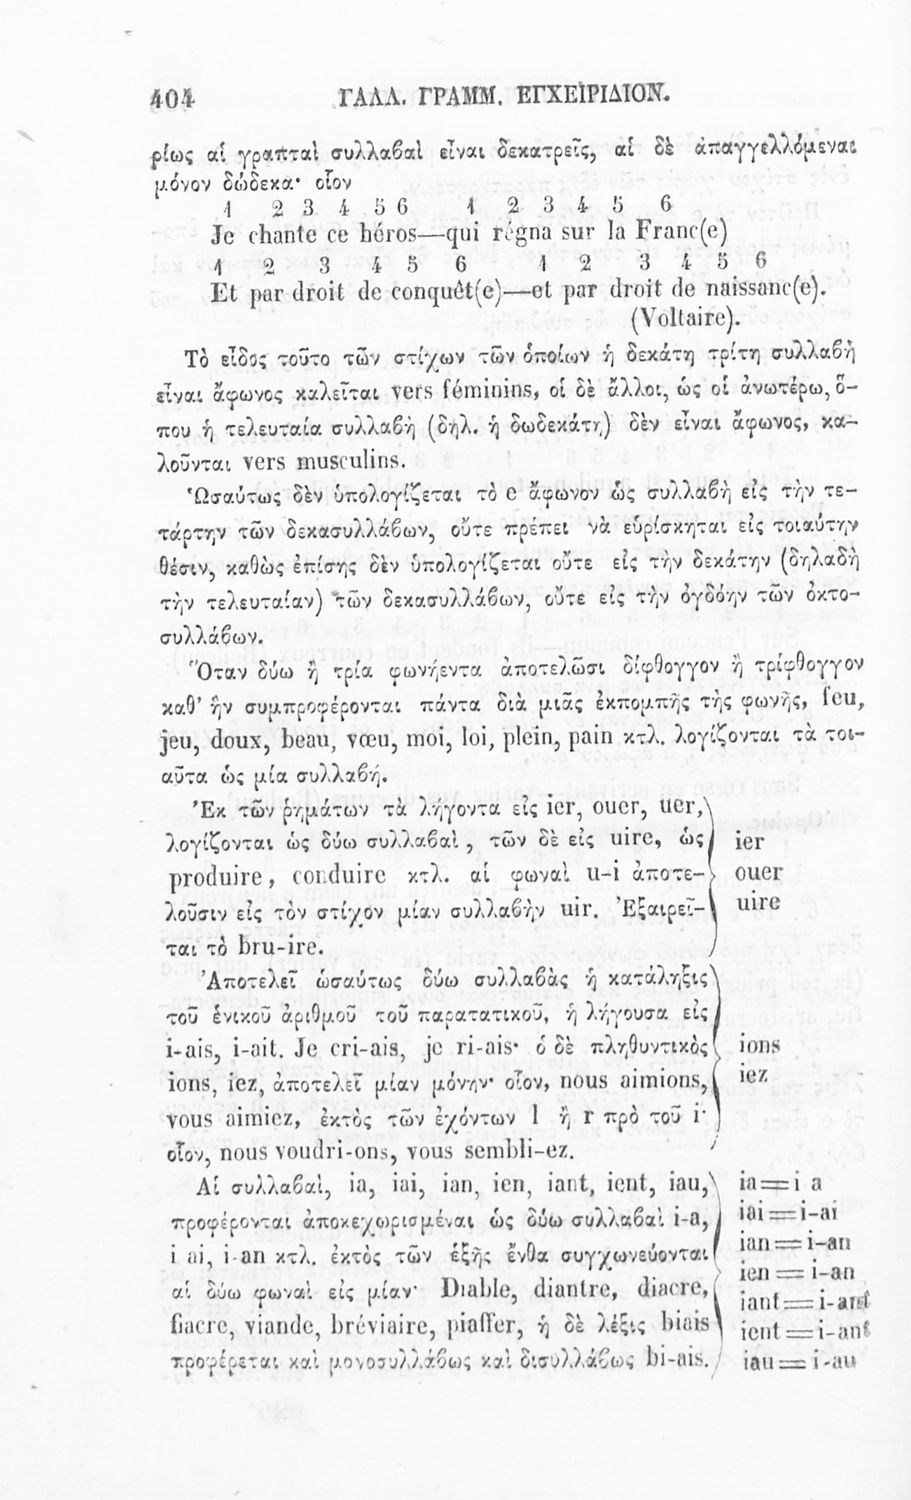 404 ΓΑΛΛ. ΓΡΑΜΜ. ΕΓΧΕΙΡΙΔΙΟΝ.
ρίως αἱ γραπταὶ συλλαβαὶ εἶναι δεκατρεῖς, αἱ δὲ ἀπαγγελλόμεναι
μόνον δώδεκα· οἷον
1 2 3 4 5 6 1 2 3 4 5 6
Je chante ce héros—qui régna sur la Franc(e)
1 2 3 4 5 6 1 2 3 4 5 6
Et par droit de conquêt(e)—et par droit de naissanc(e).
(Voltaire).
Τὸ εἶδος τοῦτο τῶν στίχων τῶν ὁποίων ἡ δεκάτη τρίτη συλλαβὴ
εἶναι ἄφωνος καλεῖται vers féminins, οἱ δὲ ἄλλοι, ὡς οἱ ἀνωτέρω, ὅ-
που ἡ τελευταία συλλαβὴ (δηλ. ἡ δωδεκάτη) δὲν εἶναι ἄφωνος, κα-
λοῦνται vers musculins.
Ὡσαύτως δὲν ὑπολογίζεται τὸ e ἄφωνον ὡς συλλαβὴ εἰς τὴν τε-
τάρτην τῶν δεκασυλλάβων, οὔτε πρέπει νὰ εὑρίσκηται εἰς τοιαύτην
θέσιν, καθὼς ἐπίσης δὲν ὑπολογίζεται οὔτε εἰς τὴν δεκάτην (δηλαδὴ
τὴν τελευταίαν) τῶν δεκασυλλάβων, οὔτε εἰς τὴν ὀγδόην τῶν ὀκτο-
συλλάβων.
Ὅταν δύω ἢ τρία φωνήεντα ἀποτελῶσι δίφθογγον ἢ τρίφθογγον
καθ' ἣν συμπροφέρονται πάντα διὰ μιᾶς ἐκπομπῆς τῆς φωνῆς, feu,
jeu, doux, beau, vœu, moi, loi, plein, pain κτλ. λογίζονται τὰ τοι-
αῦτα ὡς μία συλλαβή.
Ἐκ τῶν ῥημάτων τὰ λήγοντα εἰς ier, ouer, uer,
λογίζονται ὡς δύω συλλαβαὶ, τῶν δὲ εἰς uire, ὡς ier
produire, conduire κτλ. αἱ φωναὶ u-i ἀποτε- ouer
λοῦσιν εἰς τὸν στίχον μίαν συλλαβὴν uir. Ἐξαιρεῖ- uire
ται τὸ bru-ire.
Ἀποτελεῖ ὡσαύτως δύω συλλαβὰς ἡ κατάληξις
τοῦ ἑνικοῦ ἀριθμοῦ τοῦ παρατατικοῦ, ἡ λήγουσα εἰς
i-ais, i-ait. Je cri-ais, je ri-ais· ὁ δὲ πληθυντικὸς ions
ions, iez, ἀποτελεῖ μίαν μόνην· οἷον, nous aimions, iez
vous aimiez, ἐκτὸς τῶν ἐχόντων l ἢ r πρὸ τοῦ i·
οἷον, nous voudri-ons, vous sembli-ez.
Αἱ συλλαβαὶ, ia, iai, ian, ien, iant, ient, iau, ia=i a
προφέρονται ἀποκεχωρισμέναι ὡς δύω συλλαβαὶ i-a, iai=i-ai
i ai, i-an κτλ. ἐκτὸς τῶν ἑξῆς ἔνθα συγχωνεύονται ian=i-an
αἱ δύω φωναὶ εἰς μίαν· Diable, diantre, diacre, ien=i-an
fiacre, viande, bréviaire, piaffer, ἡ δὲ λέξις biais iant=i-ant
προφέρεται καὶ μονοσυλλάβως καὶ δισυλλάβως bi-ais. ient=i-ant
iau=i-au